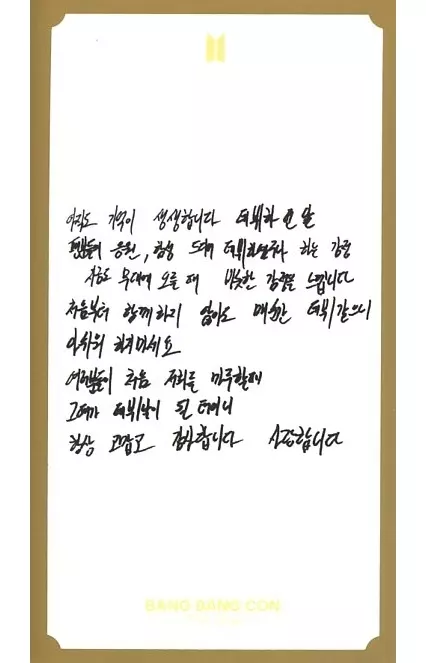 아직도 기억이 생생합니다 데뷔하던 날
팬분들의 응원, 함성 드디어 데뷔하는구나 하는 감정
지금도 무대에 오를 때 비슷한 감정을 느낍니다
처음부터 함께하지 않아도 매순간 데뷔같으니
아쉬워 하지마세요
여러분들이 처음 저희를 마주할때
그때가 데뷔날이 될 테이니
항상 고맙고 감사합니다 사랑합니다
BANG BANG CON